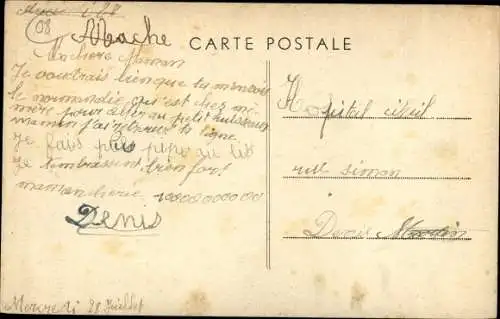 (08
Mache
CARTE POSTALE
Ma chere Maman
Je voudrais bien que tu m'envoi
le normandie qui est chez mé
mère pour aller au petit ruisseau
maman j'ai retrouvé ta ligne
Je fais pas pipi au lit
Je t'embrasse bien fort
maman cherie 10000000000
Denis
Hopital civil
rue simon
Denis
Mercredi 28 Juillet